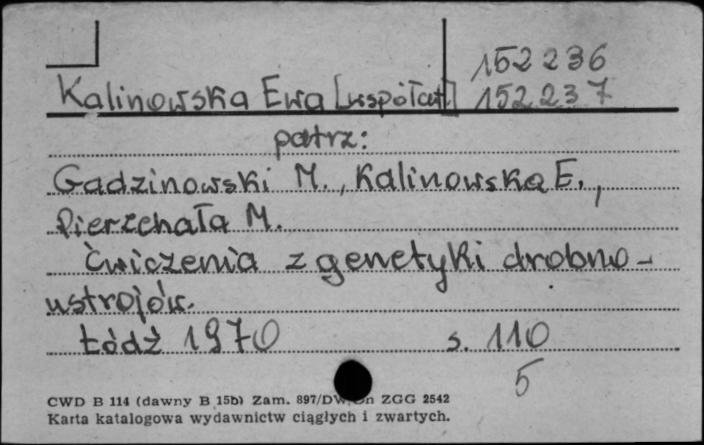 152236
Kalinowska Ewa [współaut.] 152237
patrz:
Gadzinowski M., Kalinowska E.,
Pierzchała M.
Ćwiczenia z genetyki drobno-
ustrojów.
Łódź 1970 s. 110
5
CWD B 114 (dawny B 15b) Zam. 897/DW ZGG 2542
Karta katalogowa wydawnictw ciągłych i zwartych.